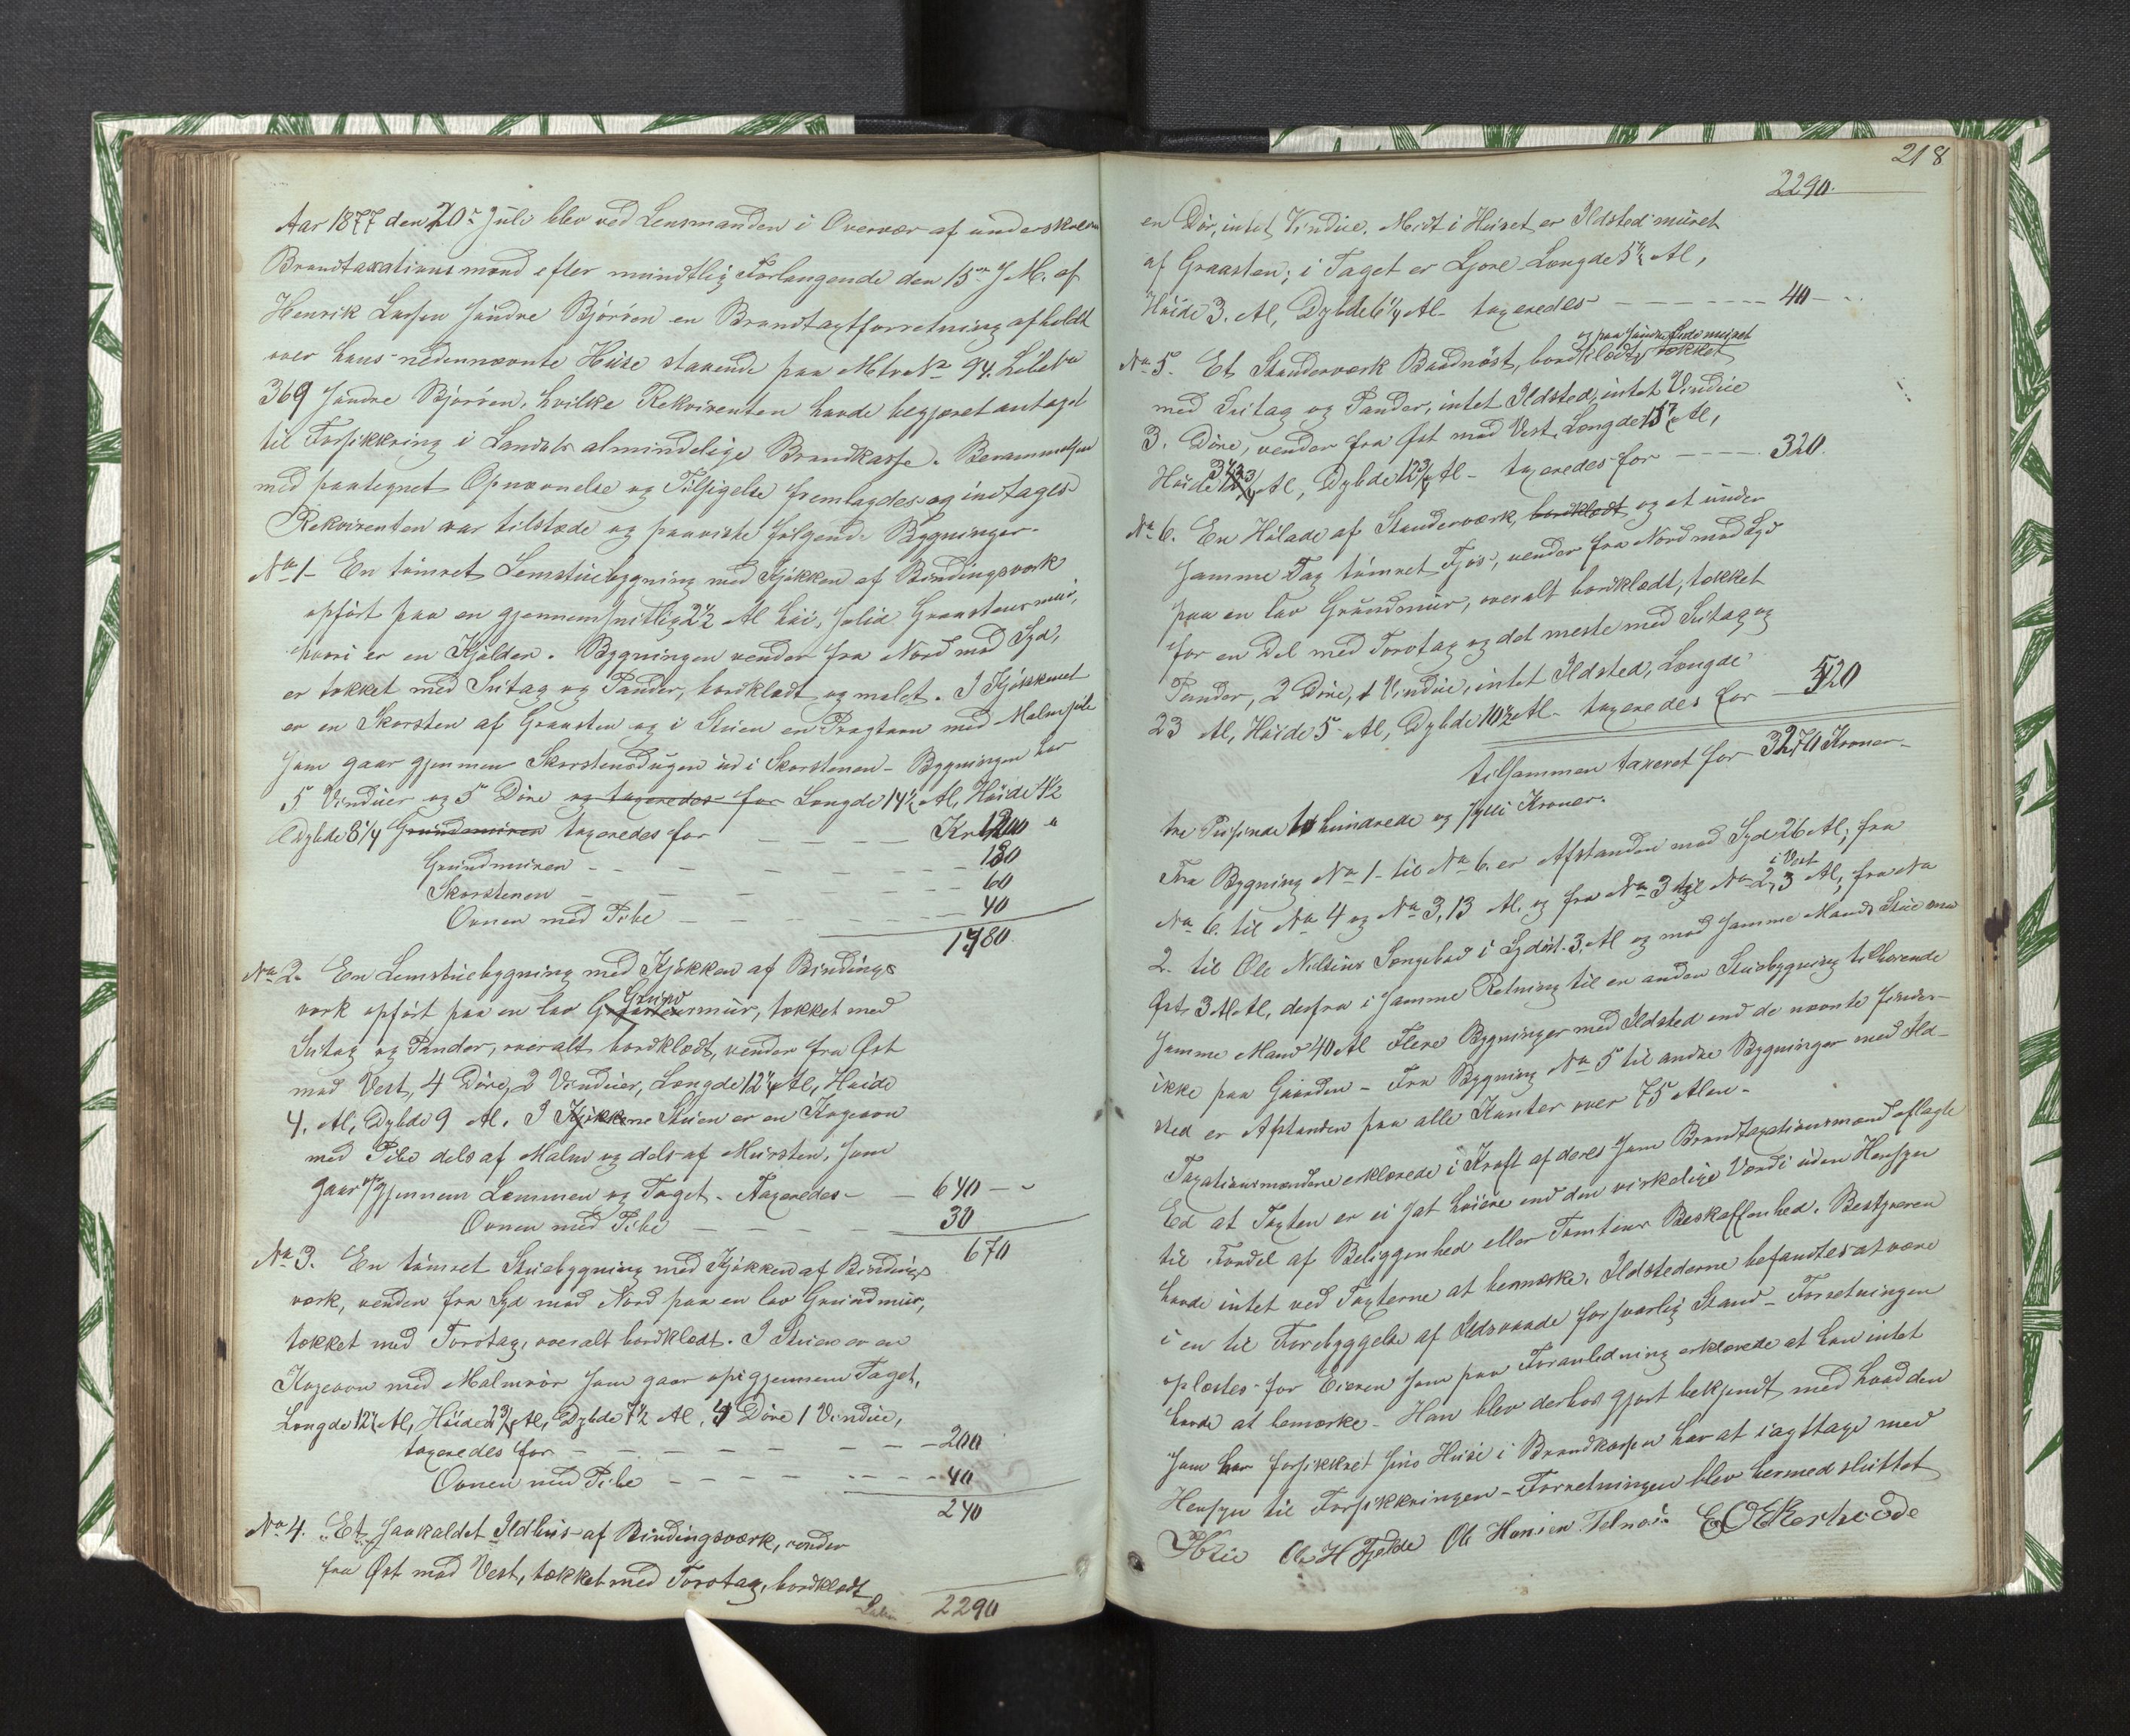 Aar 1877 den 20de Juli blev ved Lensmanden i Overvær af underskrevne
Brandtaxationsmænd efter mundtlig Forlangende den 15de s. M. af
Henrik Larsen Søndre Bjørøen en Brandtaxtforretning afholdt
over hans nedennævnte Huse staaende paa Mtr No 94. Løbe No
369 Søndre Bjørøen, hvilke Rekvirenten havde begjæret antaget
til Forsikkring i Landets almindelige Brandkasse. Berammelsen
med paategnet Opnævnelse og Tilsigelse fremlagdes og indtages
Rekvirenten var tilstede og paaviste følgende Bygninger.
No 1 - En tømret Lemstuebygning med Kjøkken af Bindingsværk
opført paa en gjennemsnitlig 2½ Al høi, solid Graastensmuur,
hvori er en Kjælder. Bygningen vender fra Nord mod Syd,
er tækket med Sutag og Pander, bordklædt og malet. I Kjøkkenet
er en Skorsten af Graasten og i Stuen en Pragtovn med Malmpibe
som gaar gjennem Skorstensdugen ud i Skorstenen - Bygningen har
5 Vinduer og 5 Døre og taxeredes for Længde 14½ Al, Høide 4½
Dybde 8¼ Grundmuren taxeredes for - - - - Kr 1200 "
Grundmuren - - - - - - 180
Skorstenen - - - - - - 60
Ovnen med Pibe - - - - - 40
1480.
No 2. En Lemstuebygning med Kjøkken af Bindings
værk opført paa en lav Grundmuur, tækket med
Sutag og Pander, overalt bordklædt, vender fra Øst
mod Vest, 4 Døre, 2 Vinduer, Længde 12¼ Al, Høide
4. Al, Dybde 9 Al. I Kjøkkene Stuen er en Kogeovn
med Pibe dels af Malm og dels af Mursten, som
gaar op gjennem Lemmen og Taget. Taxeredes - - 640 - "
Ovnen med Pibe - - - - 30
670
No 3. En tømret Stuebygning med Kjøkken af Bindings
værk, vender fra Syd mod Nord paa en lav Grundmuur,
tækket med Torvtag, overalt bordklædt. I Stuen er en
Kogeovn med Malmrør som gaar op igjennem Taget,
Længde 12¼ Al, Høide 2¾ Al, Dybde 7½ Al, 4 Døre 1 Vindue,
taxeredes for - - - - - - - 200
Ovnen med Pibe - - - - - - - 40
240
No 4. Et saakaldet Ildhus af Bindingsværk, vender
fra Øst mod Vest, tækket med Torvtag, bordklædt
2290
218
2290.
en Dør, intet Vindue. Midt i Huset er Ildsted muret
af Graasten; i Taget er Ljore - Længde 5½ Al,
Høide 3. Al, Dybde 6¼ Al - taxeredes - - - - - - 40 - "
og paa søndre Side muret
No 5. Et Standerværk Baadnøst, bordklædt, tækket
med Sutag og Pander, intet Ildsted, intet Vindue
3. Døre, vender fra Øst mod Vest, Længde 15¼ Al,
Høide 3¾ Al, Dybde 12¾ Al - taxeredes for - - - - 320.
No 6. En Hølade af Standerværk, bordklædt og et under
samme Tag tømret Fjøs, vender fra Nord mod Syd
paa en lav Grundmuur, overalt bordklædt, tækket
for en Del med Torvtag og det meste med Sutag og
Pander, 2 Døre, 1 Vindue, intet Ildsted, Længde
23 Al, Høide 5 Al, Dybde 10½ Al - taxeredes for - 520
tilsammen taxeret for 3270 Kroner -
tre Tusinde to hundrede og sytti Kroner.
Fra Bygning No 1 - til No 6. er Afstanden mod Syd 26 Al; fra
No 6. til No 4 og No 3, 13 Al. og fra No 3 til No 2 i Vest, 3 Al, fra No
2. til Ole Nilsens Sengebod i Sydøst. 3. Al og mod samme Mands Stue mod
Øst 3 Al, derfra i samme Retning til en anden Stuebygning tilhørende
samme Mand 40 Al Flere Bygninger med Ildsted end de nævnte findes
ikke paa Gaarden - Fra Bygning No 5 til andre Bygninger med Ild-
sted er Afstanden paa alle Kanter over 75 Alen -
Taxationsmændene erklærede i Kraft af deres som Brandtaxationsmænd aflagte
Ed at Taxten er ei sat høiere end den virkelige Værdi uden Hensyn
til Fordel af Beliggenhed eller Tomtens Beskaffenhed. Bestyreren
havde intet ved Taxterne at bemærke. Ildstederne befandtes at være
i en til Forebyggelse af Ildsvaade forsvarlig Stand - Forretningen
oplæstes for Eieren som paa Foranledning erklærede at han intet
havde at bemærke - Han blev derhos gjort bekjendt med hvad den
som har forsikkret sine Huse i Brandkassen har at iagttage med
Hensyn til Forsikkringen - Forretningen blev hermed sluttet
Ole H Fjelde Ole Hansen Telnæs